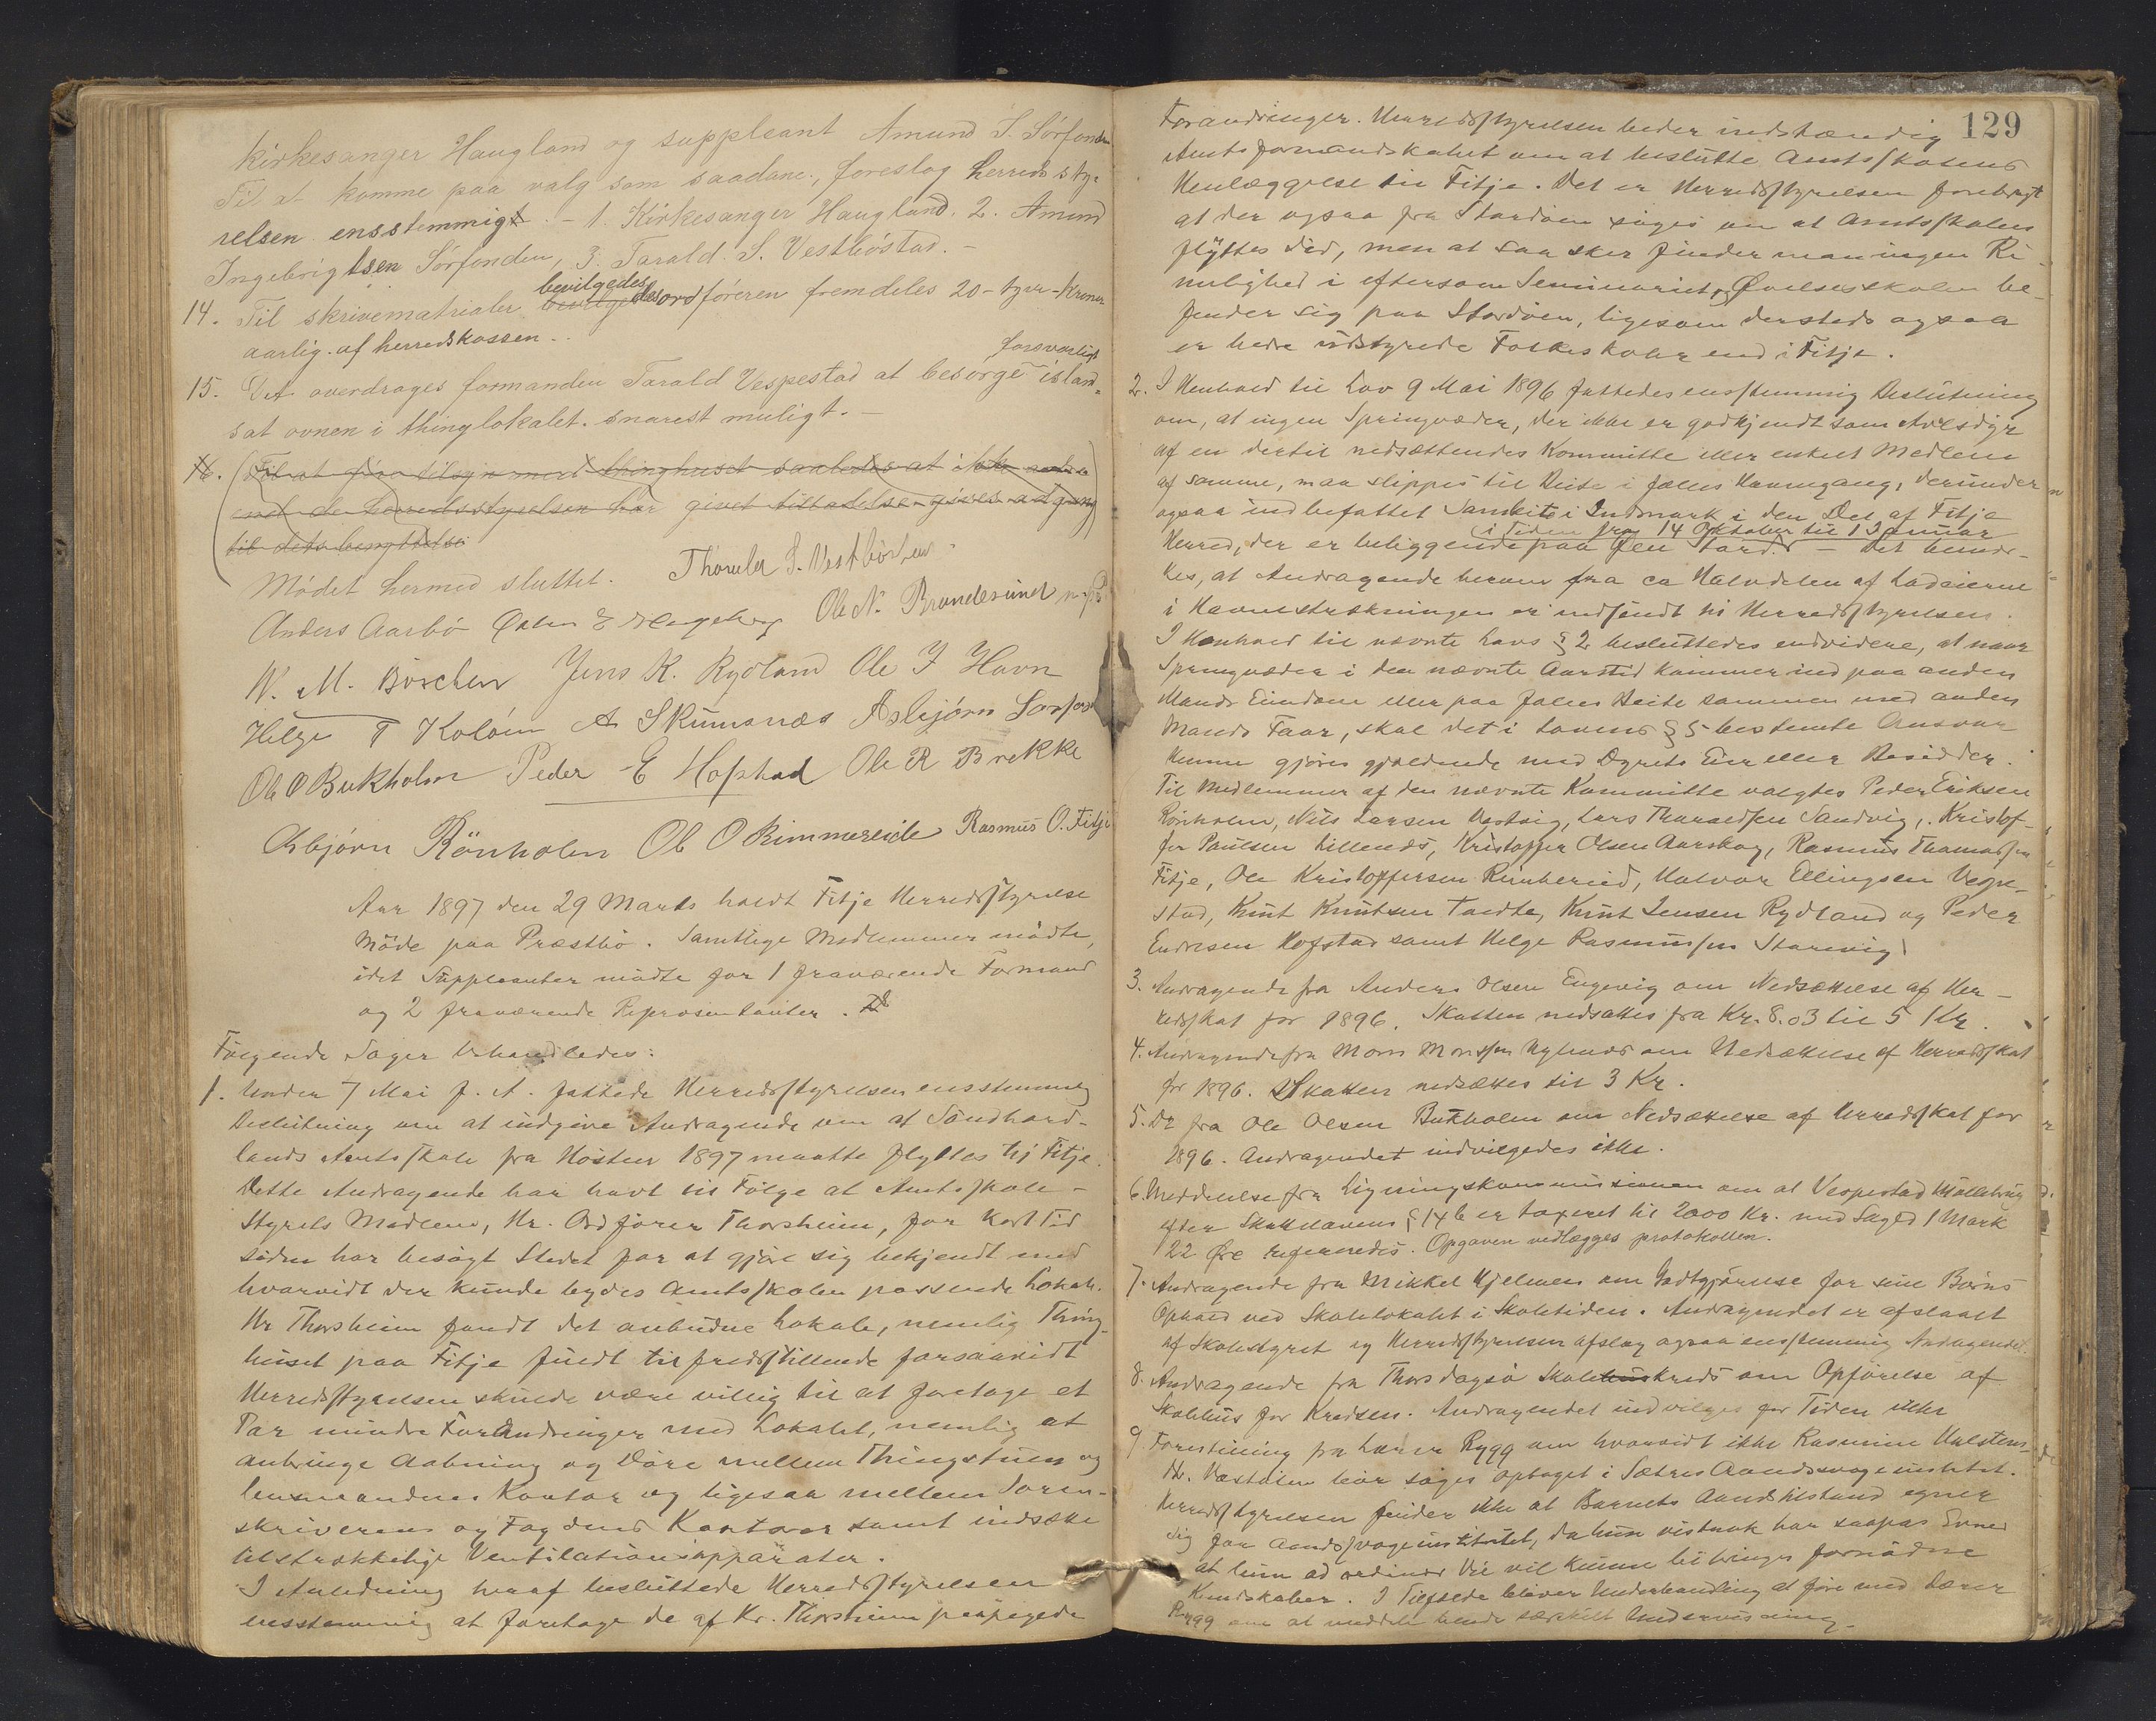 kirkesanger Haugland og suppleant Amund I. Sörfonden
Til at komme paa valg som saadane, foreslog herredssty-
relsen ensstemmigt. – 1. Kirkesanger Haugland. 2. Amund
Ingebrigtsen Sörfonden, 3. Tarald S. Vestböstad. –
14. Til skrivematrialer bevilgedes ordföreren fremdeles 20 – tyve – kroner
aarlig af herredskassen.
15. Det overdrages formanden Tarald Vespestad at besörge forsvarligt istand-
sat ovnen i thinglokalet snarest muligt. –
16. (Til at före tilsyn med thinghuset saaledes at ikke andre
end de herredsstyrelsen har givet tilladelse gives adgang
til dets benyttelse)
Mödet hermed sluttet.
Anders Aarbö Ole N. Brandesund
N. M. Börchen Jens K. Rydland Ole J Havn
Helge T Koløen A Skumsnæs Asbjörn
Ole O Bukholm Peder E Hofstad Ole R Brekke
Asbjörn Rönholm Ole O Rimmereide Rasmus O. Fitje
Aar 1897 den 29 Marts holdt Fitje Herredsstyrelse
Möde paa Præstbö. Samtlige Medlemmer mödte,
idet Suppleanter mödte for 1 fraværende Formand
og 2 fraværende Repræsentanter.
Fölgende Sager behandledes:
1. Under 7 Mai f. A. fattede Herredsstyrelsen ensstemmig
Beslutning om at indgive Andragende om at Söndhord-
lands Amtsskole fra Hösten 1897 maatte flyttes til Fitje.
Dette Andragende har havt til Fölge at Amtsskole-
styrets Medlem, Hr. Ordförer Thorsheim, for kort Tid
siden har besögt Stedet for at gjöre sig bekjendt med
hvorvidt der kunde bydes Amtsskolen passende Lokale.
Hr Thorsheim fandt det anbudne Lokale, nemlig Thing-
huset paa Fitje fuldt tilfredsstillende forsaavidt
Herredsstyrelsen skulde være villig til at foretage et
Par mindre Forandringer med Lokalet, nemlig at
anbringe Aabning og Döre mellem Thingstuen og
lensmandens Kontor og ligesaa mellem Soren-
skriverens og Fogdens Kontor samt indsætte
tilstrækkelige Ventilationsapparater.
I Anledning heraf besluttede Herredsstyrelsen
ensstemmig at foretage de af Hr. Thorsheim paapegede
129
Forandringer. Herredsstyrelsen beder indstændig
Amtsformandskabet om at beslutte Amtsskolens
Henlæggelse til Fitje. Det er Herredsstyrelsen forebragt
at der ogsaa fra Stordöen söges om at Amtsskolen
flyttes did, men at saa sker finder man ingen Ri-
melighed i eftersom Seminariet og Övelsesskolen be-
finder sig paa Stordöen, ligesom dersteds ogsaa
er bedre udstyrede Folkeskoler end i Fitje.
2. I Henhold til Lov 9 Mai 1896 fattedes ensstemmig Beslutning
om, at ingen Springvæder, der ikke er godkjendt som Avlsdyr
af en dertil nedsættendes Kommitte eller enkelt Medlem
af samme, maa slippes til Beite i fælles Havnegang, derunder
ogsaa indbefattet Sambeite i Indmark i den Del af Fitje
i Tiden fra 14 Oktober til 1 Januar
Herred, der er beliggende paa Öen Stord. – Det bemær-
kes, at Andragende herom fra ca Halvdelen af Ladeierne
i Havnestrækningen er indsendt til Herredsstyrelsen.
I Henhold til nævnte Lovs § 2 besluttedes endvidere, at naar
Springvæder i den nævnte Aarstid kommer ind paa anden
Mands Eiendom eller paa fælles Beite sammen med anden
Mands Faar, skal det i Lovens § 5 bestemte Ansvar
kunne gjöres gjældende mod Dyrets Eier eller Besidder.
Til Medlemmer af den nævnte Kommitte valgtes Peder Eriksen
Rönholm, Nils Larsen Vestvig, Lars Tharaldsen Sandvig, Kristof-
fer Paulsen Lillenes, Kristoffer Olsen Aarskog, Rasmus Thomassen
Fitje, Ole Kristoffersen Rimbereid, Halvor Ellingsen Vespe-
stad, Knut Knutsen Tveite, Knut Jensen Rydland og Peder
Endresen Hofstad samt Helge Rasmussen Starevig
3. Andragende fra Anders Olsen Engevig om Nedsættelse af Her-
redsskat for 1896. Skatten nedsattes fra Kr. 8.03 til 5 Kr.
4. Andragende fra Mons Monssen Nylend om Nedsættelse af Herredsskat
for 1896. Skatten nedsættes til 3 Kr.
5. Do fra Ole Olsen Bukholm om Nedsættelse af Herredsskat for
1896. Andragendet indvilgedes ikke.
6. Meddelelse fra Ligningskommissionen om at Vespestad Möllebrug
efter Skattelovens § 14 b er taxeret til 2000 Kr. med Skyld 1 Mark
22 Öre refereredes. Opgaven vedlægges protokollen.
7. Andragende fra Mikkel Hjelmen om Godtgjörelse for sine Börns
Ophold ved Skolelokalet i Skoletiden. Andragendet er afslaaet
af Skolestyret og Herredsstyrelsen afslog ogsaa ensstemmig Andragendet.
8. Andragende fra Thorsdagsö Skolekreds om Opförelse af
Skolehus for Kredsen. Andragendet indvilges for Tiden ikke
9. Forestilling fra Lærer Rygg om hvorvidt ikke Rasmine Halstens-
dr. Vaxholm bör söges optaget i Sætres Aandssvageinstitut.
Herredsstyrelsen finder ikke at Barnets Aandstilstand egner
sig for Aandssvageinstitutet, da hun vistnok har saapas Evner
at hun ad ordinær Vei vil kunne bibringes fornödne
Kundskaber. I Tilfælde bliver Underhandling at före med Lærer
Rygg om at meddele hende særskilt Undervisning –